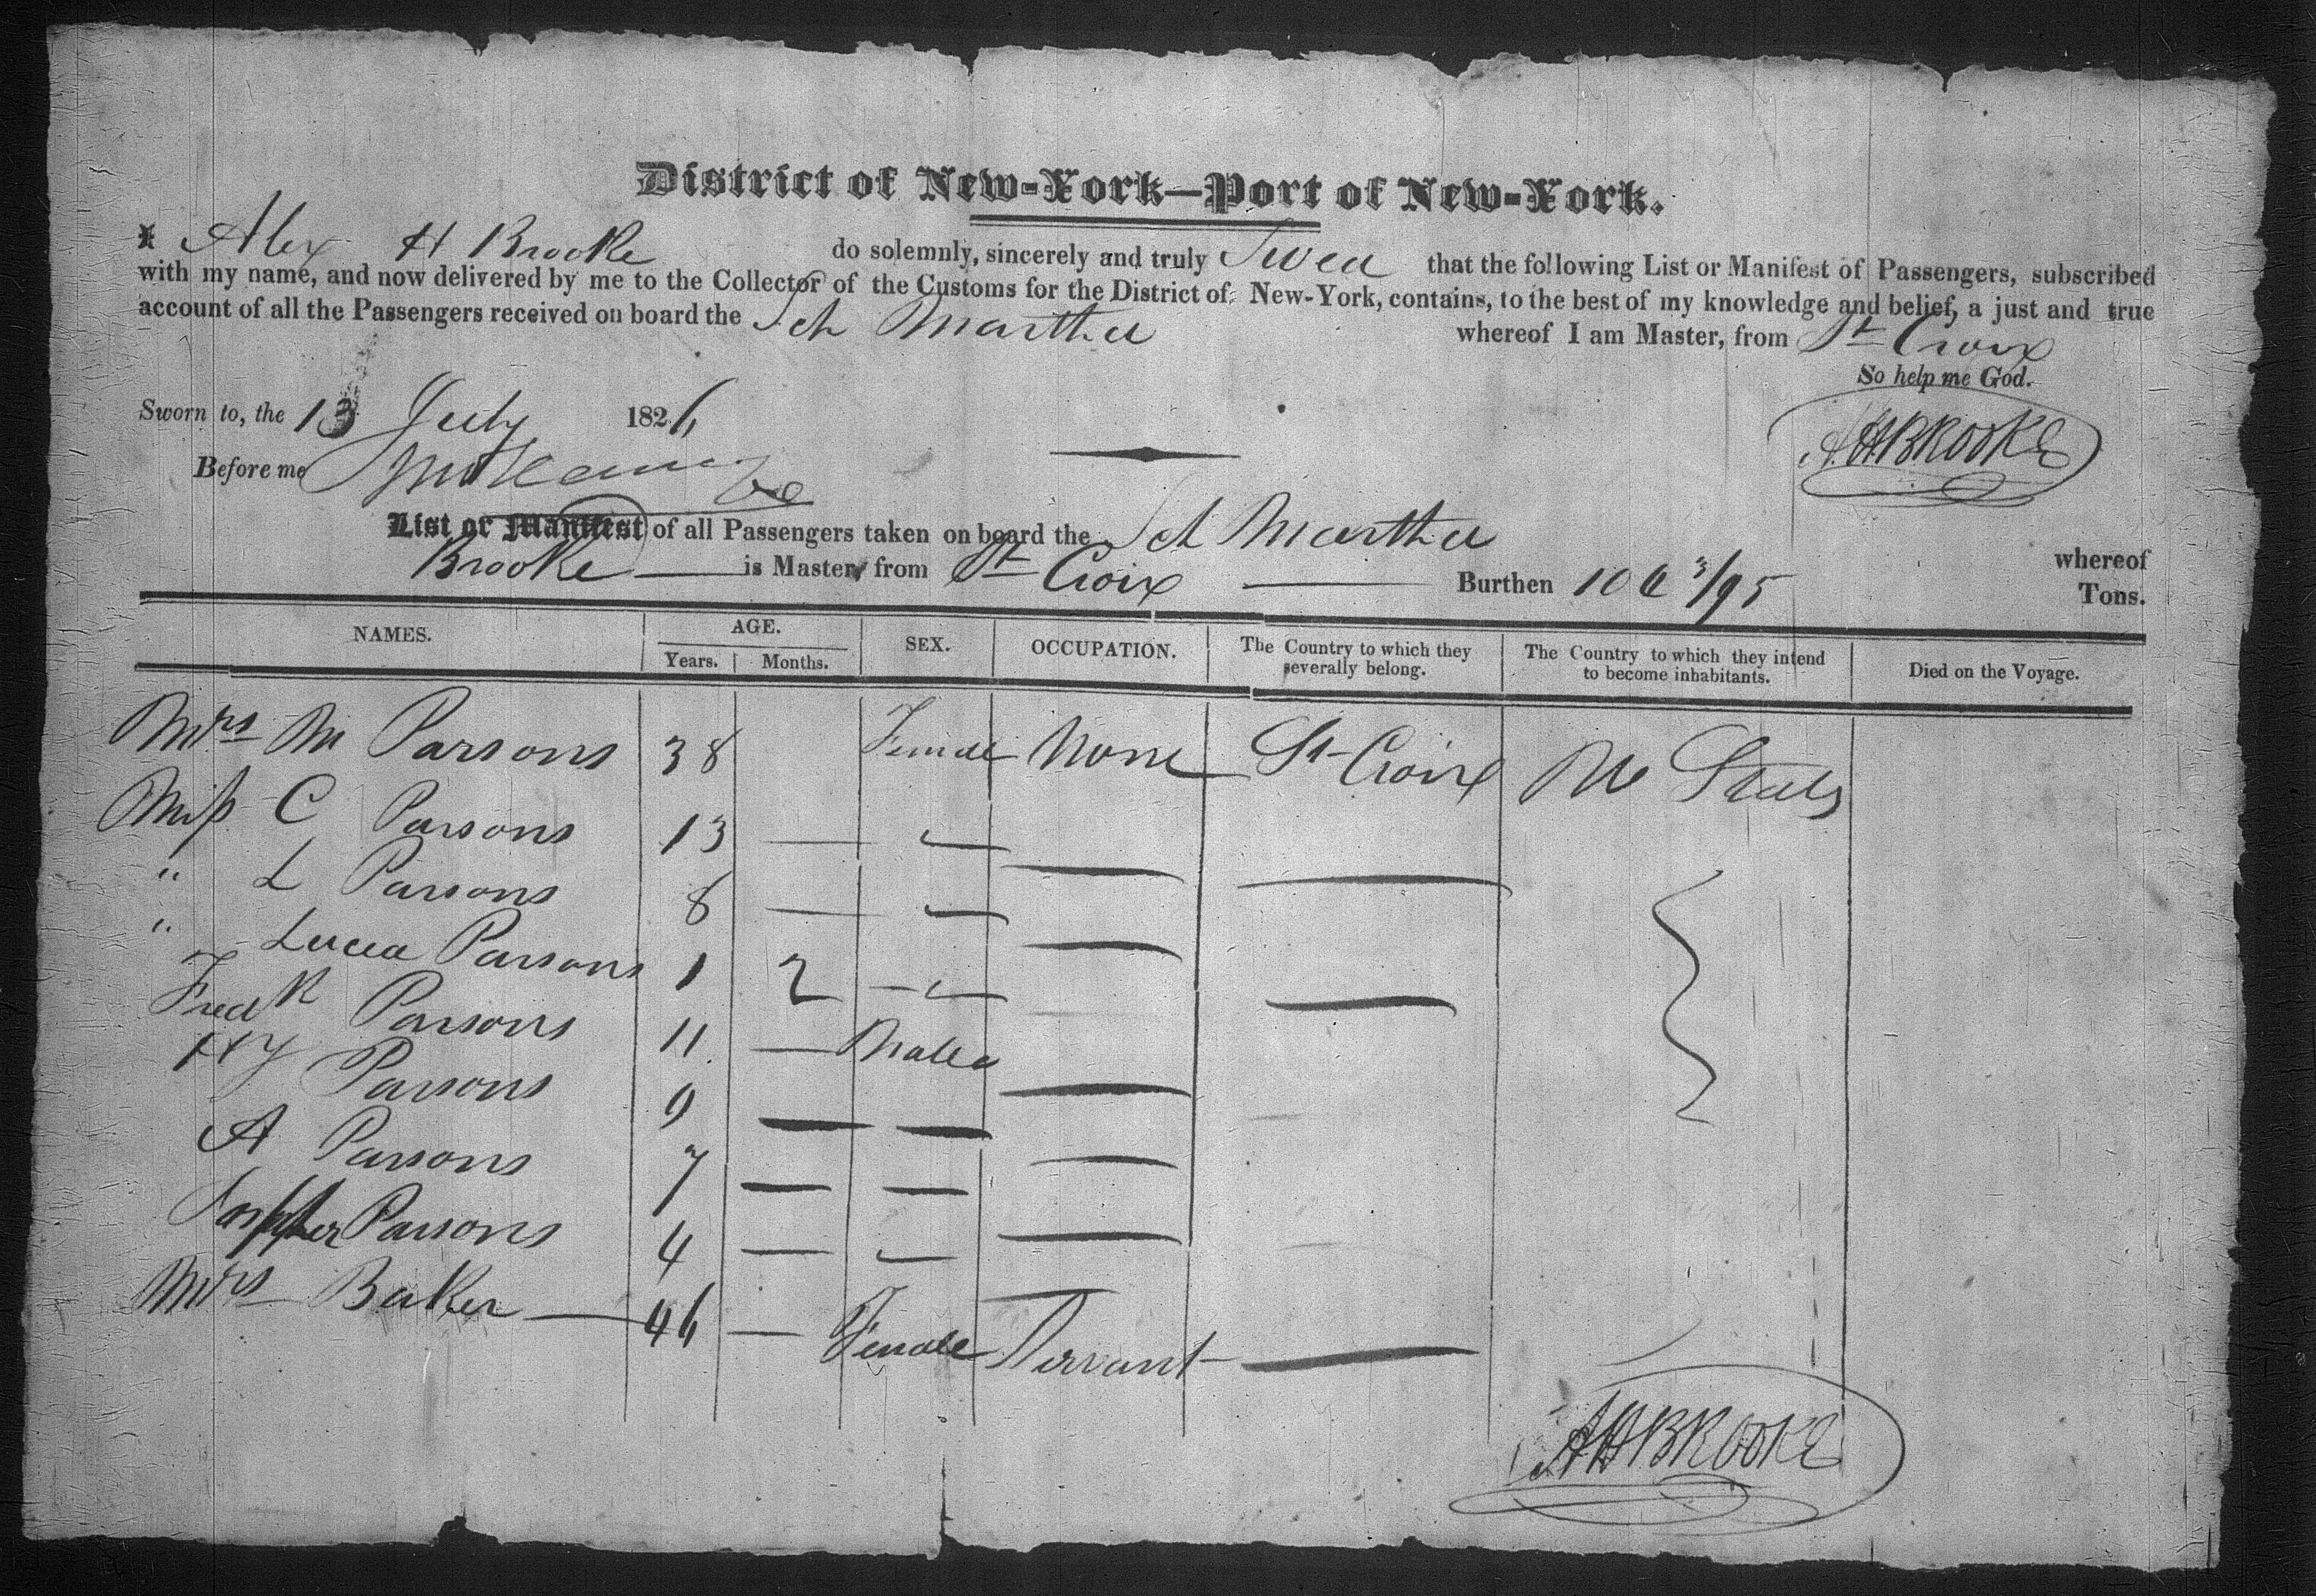 District of New-York—Port of New-York.
I Alex H Brooke do solemnly, sincerely and truly Swea that the following List or Manifest of Passengers, subscribed
with my name, and now delivered by me to the Collector of the Customs for the District of New-York, contains, to the best of my knowledge and belief, a just and true
account of all the Passengers received on board the Sch Martha whereof I am Master, from St Croix
So help me God.
Sworn to, the 13 July 1826
A.H.BROOKE
Before me
List or Manifest of all Passengers taken on board the Sch Martha whereof
Brooke is Master, from St Croix Burthen 106 3/95 Tons.
NAMES. AGE. SEX. OCCUPATION. The Country to which they severally belong. The Country to which they intend to become inhabitants. Died on the Voyage.
Years. Months.
Mrs M Parsons 38 Female None St Croix States
Miss C Parsons 13 — —
" L Parsons 8 — —
" Lucea Parsons 1 2 —
Fredk Parsons 11 — Male
Hy Parsons 9 — —
A Parsons 7 — —
Parsons 4 — —
Mrs Baker — 46 — Female Servant —
AHBROOKE